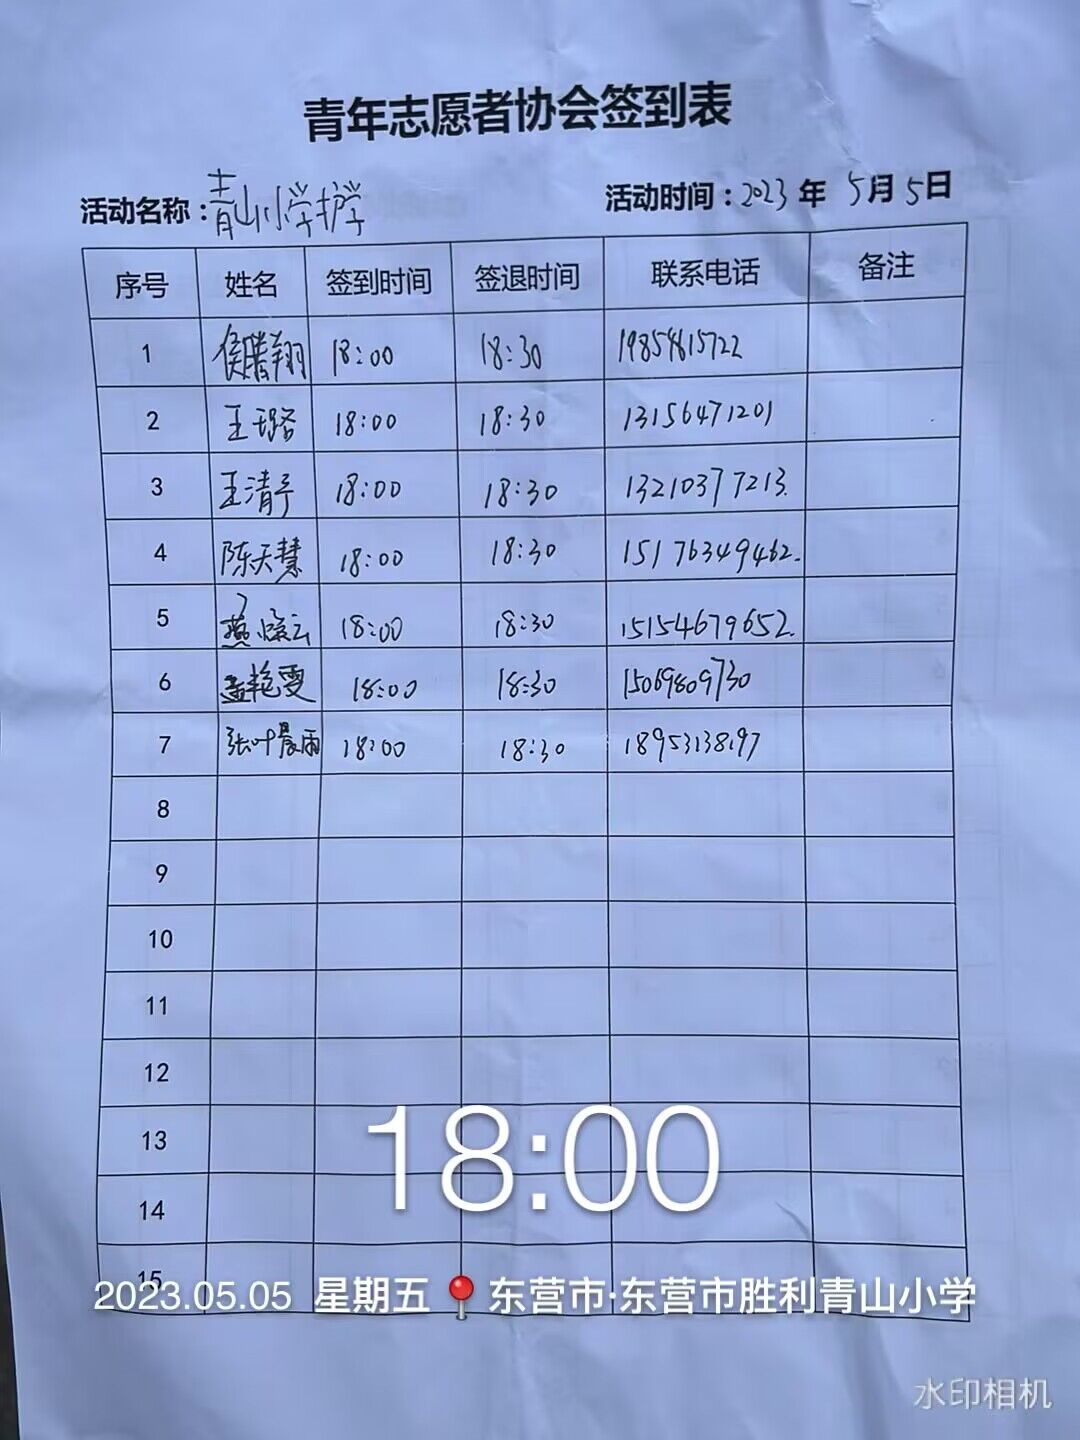 青年志愿者协会签到表
活动名称：青山小学护学 活动时间：2023年 5月5日
序号 姓名 签到时间 签退时间 联系电话 备注
1 侯腾翔 18:00 18:30 19854815722
2 王璐 18:00 18:30 13156471201
3 王清予 18:00 18:30 13210377213.
4 陈天慧 18:00 18:30 15176349462.
5 燕 云 18:00 18:30 15154679652.
6 孟艳雯 18:00 18:30 15069809730
7 张叶晨雨 18:00 18:30 18953138197
8
9
10
11
12
13
18:00
14
15
2023.05.05 星期五 东营市·东营市胜利青山小学
水印相机